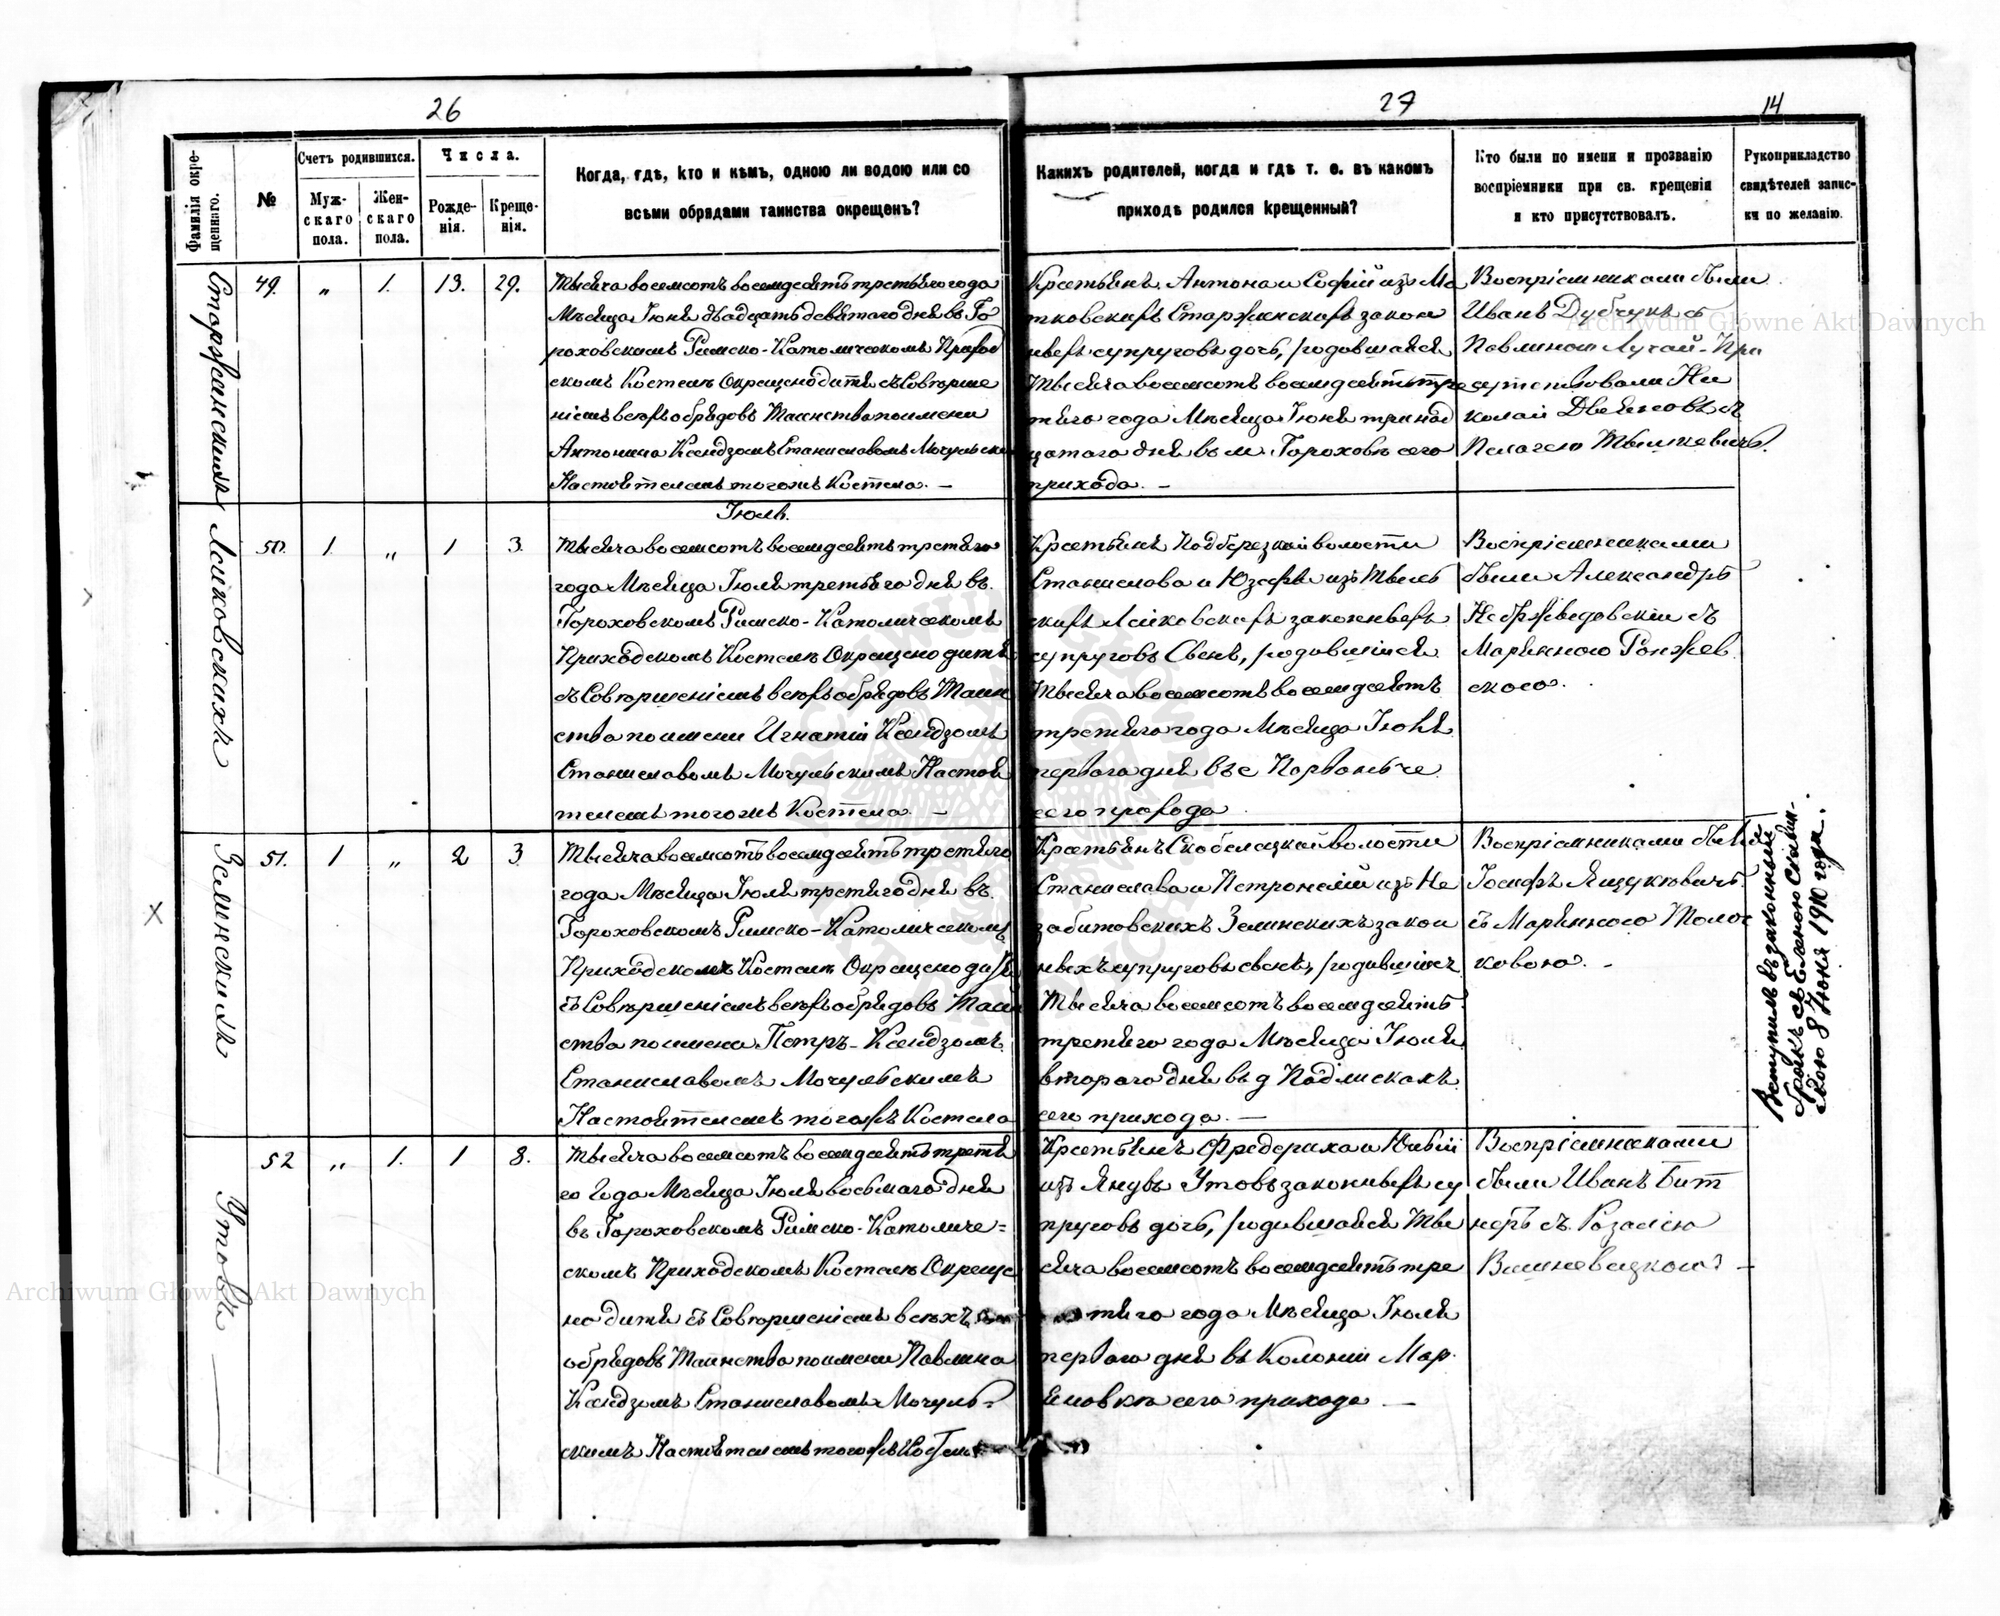 26
27
14
Фамилія окрещеннаго.
№
Счетъ родившихся.
Мужскаго пола.
Женскаго пола.
Числа.
Рожденія.
Крещенія.
Когда, гдѣ, кто и кѣмъ, одною ли водою или со
всѣми обрядами таинства окрещенъ?
Каких родителей, когда и гдѣ т. е. въ какомъ
приходѣ родился крещенный?
Кто были по имени и прозванію
воспріемники при св. крещеніи
и кто присутствовалъ.
Рукоприкладство
свидѣтелей записки
по желанію.
49. „ 1. 13. 29.
Тысяча восемсотъ восемдесятъ третьяго года
Мѣсяца Іюня двадцать девятаго дня въ Го
роховскомъ Римско-Католическомъ Приход
скомъ Костелѣ Окрещено дитя съ Соверше
ніемъ всѣхъ обрядовъ Таинства по имени
Антонина Ксендзомъ Станиславомъ Мочульским
Настоятелемъ тогожъ Костела. –
Крестьянъ Антона и Софіи изъ
тковскихъ Старжинскихъ закон
ныхъ супруговъ дочь, родившаяся
Тысяча восемсотъ восемдесятъ тре
тяго года Мѣсяца Іюня тринад
цатаго дня въ м. Гороховѣ сего
прихода. –
Воспріемниками были
Иванъ Дубчукъ съ
Павлиною
Присутствовали Ни
колай съ
Пелагею
Іюль.
Ясіковскихъ
50. 1. „ 1 3.
Тысяча восемсотъ восемдесятъ третяго
года Мѣсяца Іюля третьяго дня въ
Гороховскомъ Римско-Католическомъ
Приходскомъ Костелѣ Окрещено дитя
съ Совершеніемъ всѣхъ обрядовъ Таин
ства по имени Игнатій Ксендзомъ
Станиславомъ Мочульскимъ Настоя
телемъ тогожъ Костела. –
Крестьянъ Подберезкой волости
Станислава и Юзефы изъ
Ясіковскихъ законныхъ
супруговъ Сынъ, родившійся
Тысяча восемсотъ восемдесятъ
третяго года Мѣсяца Іюля
перваго дня въ с
сего прихода.
Воспріемниками
были Александръ
съ
Маріянною
скою.
Зелинскихъ
51. 1 „ 2 3
Тысяча восемсотъ восемдесятъ третяго
года Мѣсяца Іюля третяго дня въ
Гороховскомъ Римско-Католическомъ
Приходскомъ Костелѣ Окрещено дитя
съ Совершеніемъ всѣхъ обрядовъ Таин
ства по имени Петръ – Ксендзомъ
Станиславомъ Мочульскимъ
Настоятелемъ тогожъ Костела
Крестьянъ Скобелецкой волости
Станислава и Петронелій изъ Не
забитовскихъ Зелинскихъ закон
ныхъ супруговъ сынъ, родившійся
Тысяча восемсотъ восемдесятъ
третяго года Мѣсяца Іюля
втораго дня въ д Подлискахъ
сего прихода. —
Воспріемниками были
Іосифъ Яцукевичъ
съ Маріянною Толоч
ковою. –
Вступилъ въ законный
бракъ съ Еленою
8 Іюня 1910 года.
Утовъ
52 „ 1. 1 8.
Тысяча восемсотъ восемдесятъ третья
го Года Мѣсяца Іюля восьмаго дня
въ Гороховскомъ Римско-Католиче=
скомъ Приходскомъ Костелѣ Окреще
но дитя съ Совершеніемъ всѣхъ
обрядовъ Таинства по имени Павлина
Ксендзомъ Станиславомъ Мочуль=
скимъ Настоятелемъ тогожъ Костела
Крестьянъ Фредериха и
изъ Янувъ Утовъ законныхъ су
пруговъ дочь, родившаяся Ты
сяча восемсотъ восемдесятъ тре
тяго года Мѣсяца Іюля
перваго дня въ Колоніи Мар
яновкѣ сего прихода —
Воспріемниками
были Иванъ Бит
неръ съ Розалією
Вишневецкою –
Archiwum Główne Akt Dawnych
Archiwum Główne Akt Dawnych